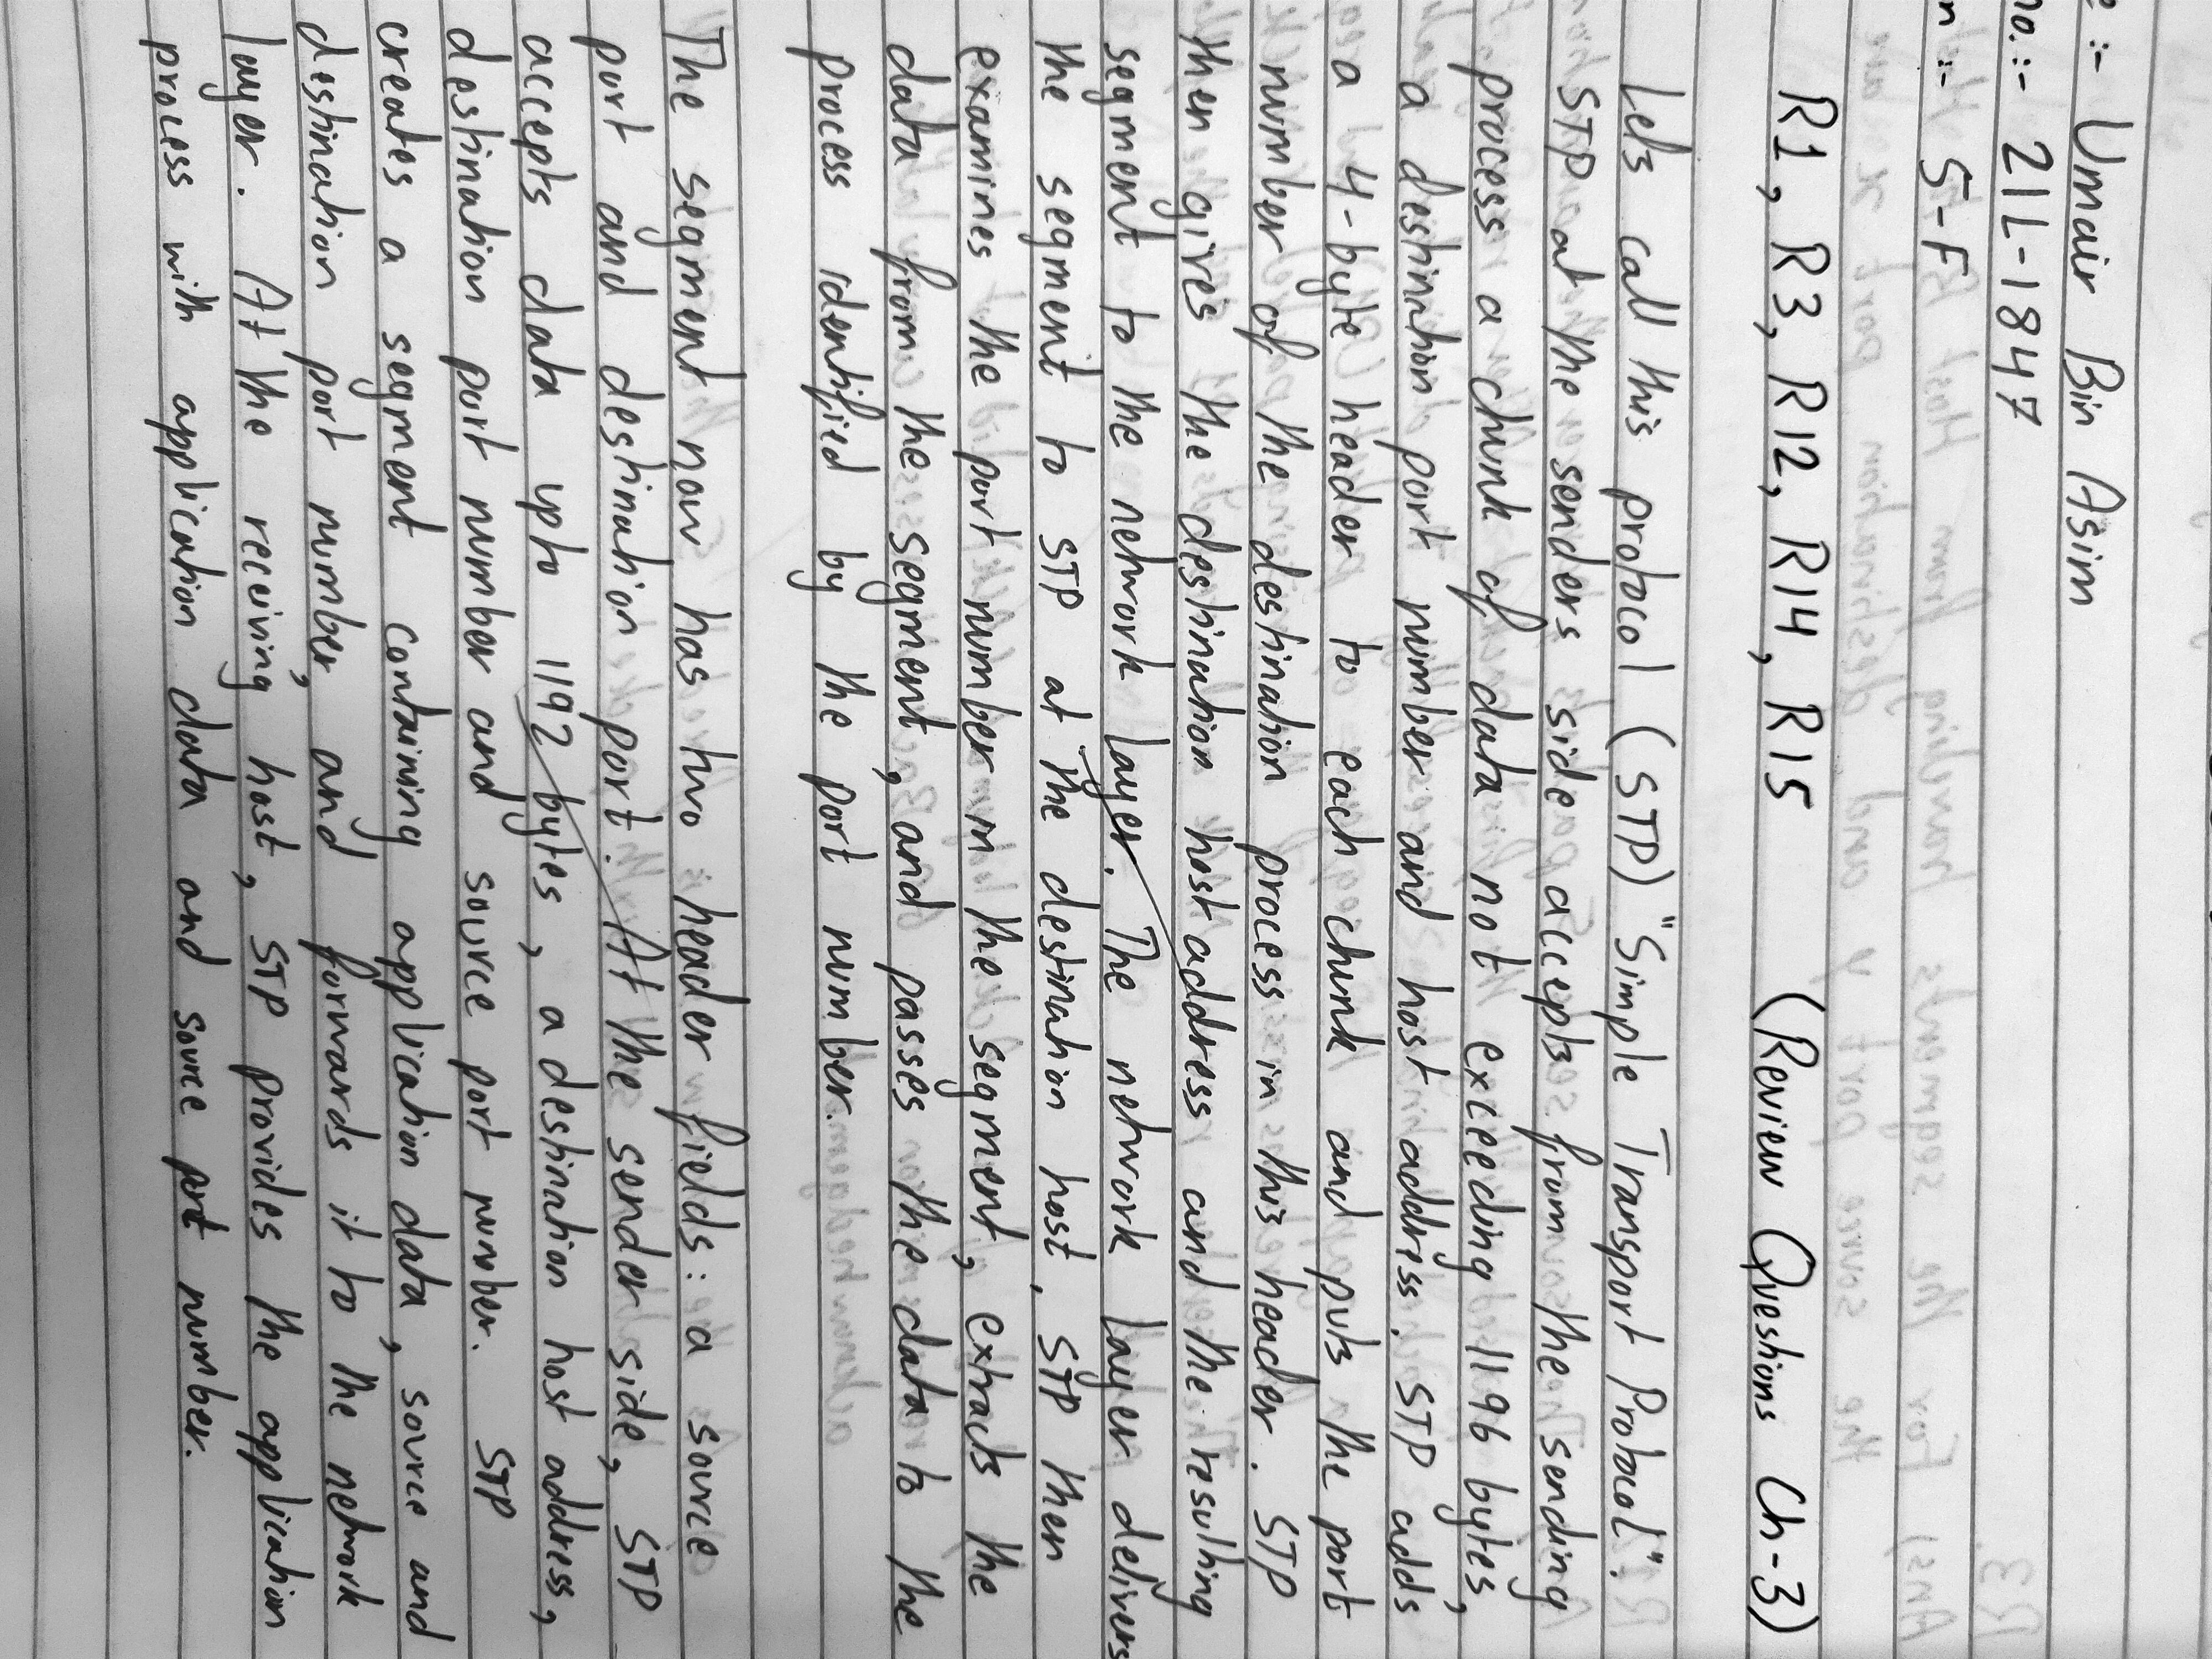 e :- Umair Bin Asim
no. :- 21L-1847
n :- 5-F
R1, R3, R12, R14, R15 (Review Questions Ch-3)
Lets call this protocol (STP) "Simple Transport Protocol".
STP at the senders side accepts from the sending
process a chunk of data not exceeding 1196 bytes,
a destination port number and host address. STP adds
a 4-byte header to each chunk and puts the port
number of the destination process in this header. STP
then gives the destination host address and the resulting
segment to the network layer. The network layer delivers
the segment to STP at the destination host, STP then
examines the port number in the segment, extracts the
data from the segment, and passes the data to the
process identified by the port number.
The segment now has two header fields: a source
port and destination port. At the sender side, STP
accepts data upto 1192 bytes, a destination host address,
destination port number and source port number. STP
creates a segment containing application data, source and
destination port number, and forwards it to the network
layer. At the receiving host, STP provides the application
process with application data and source port number.